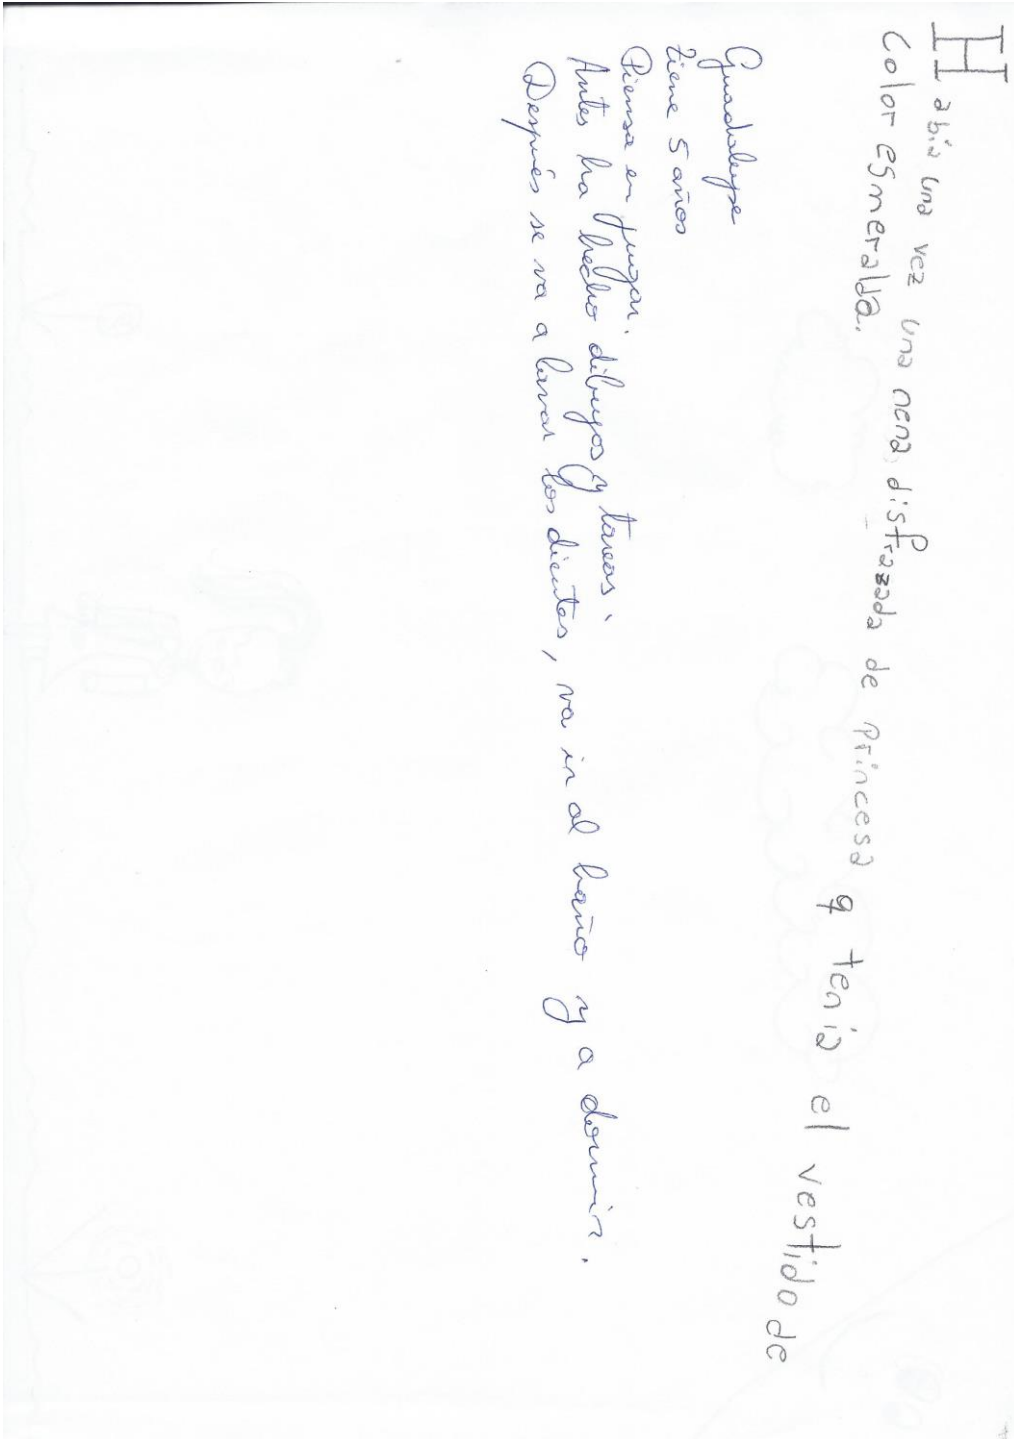 Había una vez una nena disfrazada de princesa q tenía el vestido de
color esmeralda.
Guadalupe
tiene 5 años
Piensa en jugar.
Antes ha hecho dibujos y tareas.
Después se va a lavar los dientes, va ir al baño y a dormir.